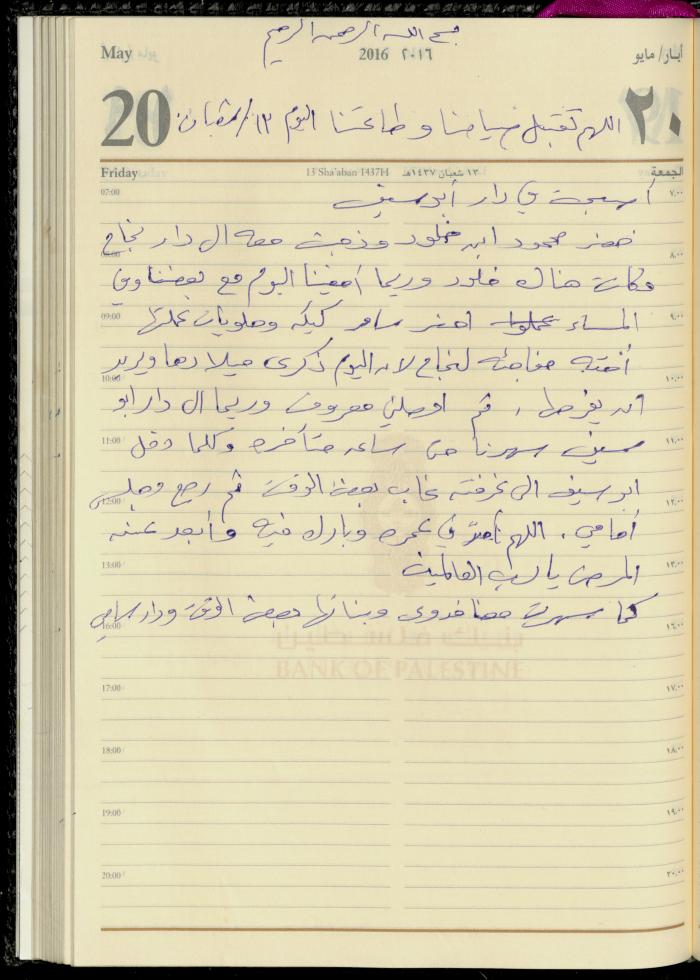 بسم الله الرحمن الرحيم
May 2016 ٢٠١٦ أيار/ مايو
20 اللهم تقبل صيامنا وطاعتنا اليوم ١٣/شعبان ٢٠
Friday 13 Sha'aban 1437H ١٣ شعبان ١٤٣٧هـ الجمعة
07:00 أصبحت في دار أبو سيف ٧:٠٠
08:00 حضر محمود ابن خلود وذهبت معه الى دار نجاح ٨:٠٠
وكانت هناك خلود وريما أمضينا اليوم مع بعضنا وفي
09:00 المساء عملوا احضر سامر كيكه وحلويات عملتها ٩:٠٠
أخته مفاجئه لنجاح لان اليوم ذكرى ميلادها ويريد
10:00 ان يفرحها، ثم اوصلني معروف وريما الى دار ابو ١٠:٠٠
11:00 سيف سهرنا حتى ساعه متأخره وكلما دخل ١١:٠٠
12:00 ابو سيف الى غرفته غاب بعض الوقت ثم رجع وجلس ١٢:٠٠
أمامي. اللهم في عمره وبارك فيه وأبعد عنه
13:00 المرض يا رب العالمين ١٣:٠٠
16:00 كما سهرت معنا فدوى وبناتها بعض الوقت ودار سامي ١٦:٠٠
بنك فلسطين
BANK OF PALESTINE
17:00 ١٧:٠٠
18:00 ١٨:٠٠
19:00 ١٩:٠٠
20:00 ٢٠:٠٠